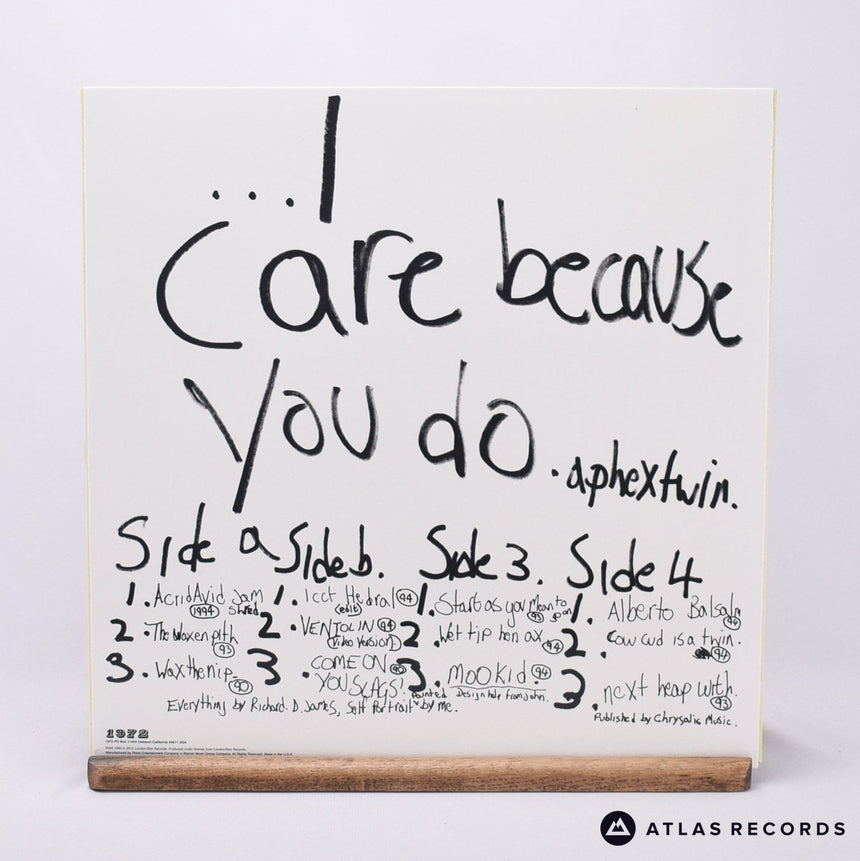 ...I
Care because
You do.
.aphextwin.
Side a
1. AcridAvid Jam
1994 Shred
2. The waxen pith
93
3. Wax the nip
90
Side b.
1. Icct Hedral 94
(edit)
2. VENTOLIN 94
(Video Version)
3. COME ON 90
YOU SLAGS!
Side 3.
1. Start as you Mean to
93 go on
2. Wet tip hen ax 94
3. MOOKid 94
Side 4
1. Alberto Balsalm
94
2. Cow cud is a twin.
94
3. next heap with.
93
Everything by Richard. D. James, Self Portrait painted by me. Design help from John.
Published by Chrysalis Music.
1972
Manufactured by Rhino Entertainment Company, a Warner Music Group Company. All Rights Reserved. Made in the U.S.A.
ATLAS RECORDS